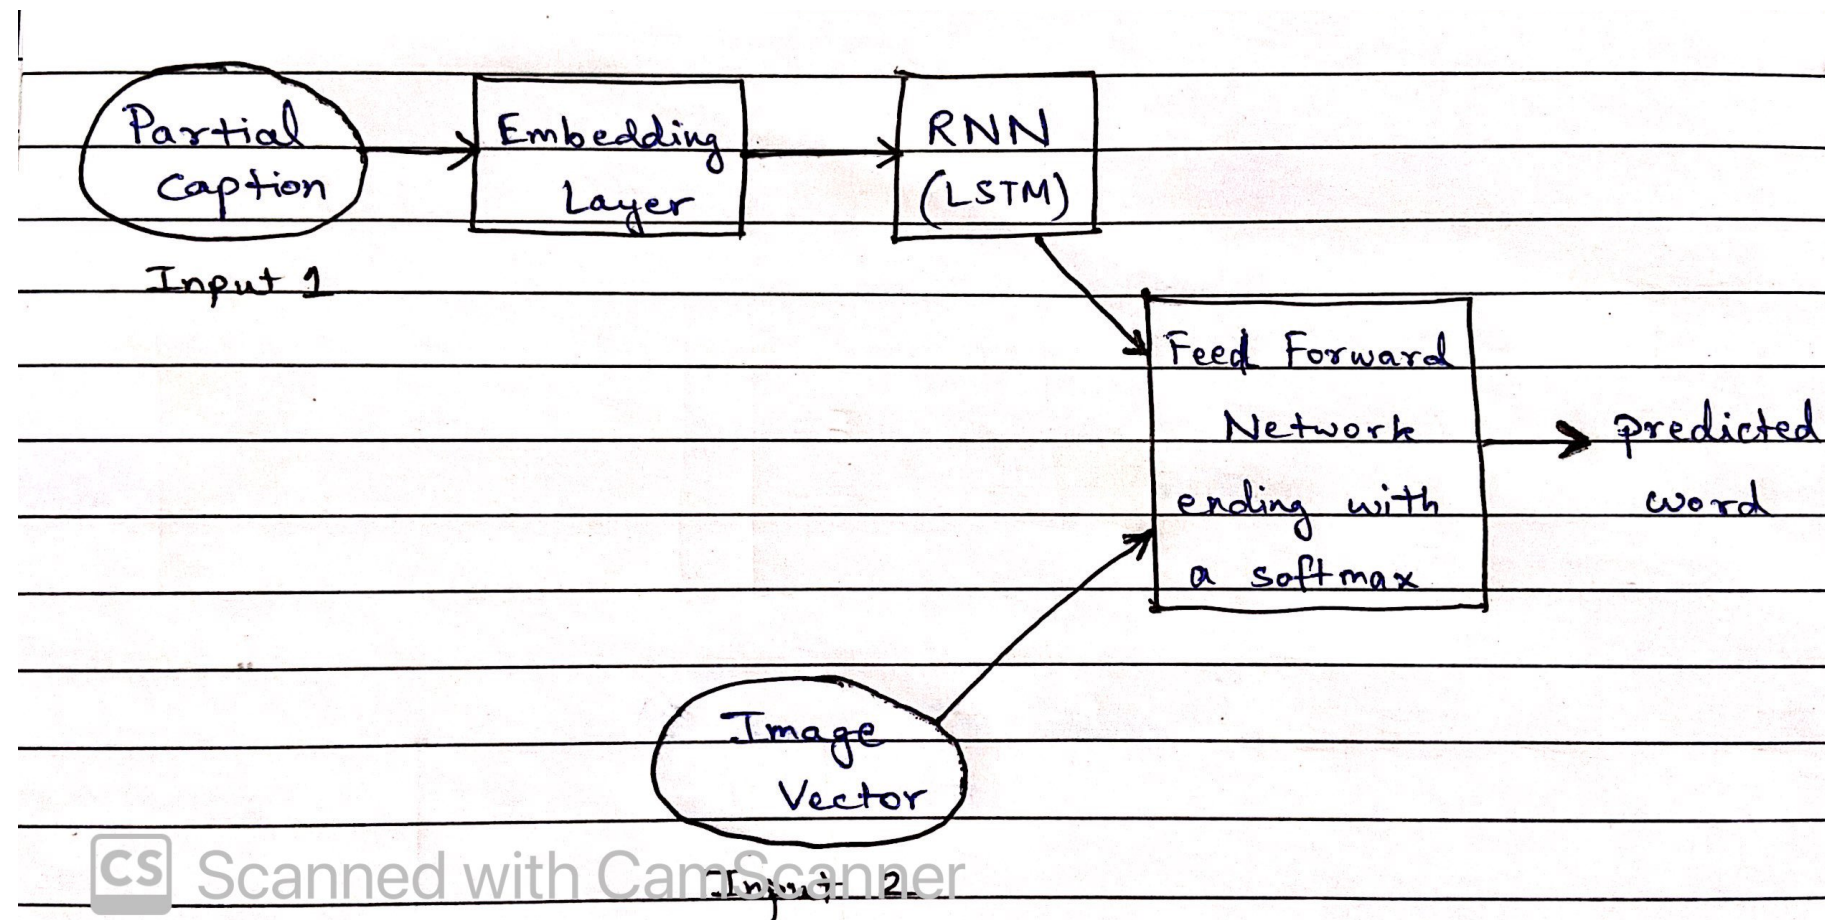 Partial
Caption
Input 1
Embedding
Layer
RNN
(LSTM)
Feed Forward
Network
ending with
a softmax
predicted
word
Image
Vector
Input 2
CS Scanned with CamScanner